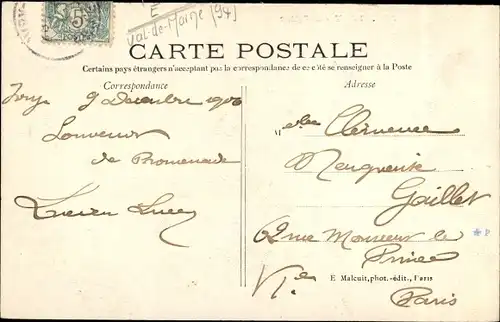 E
Val-de-Marne [94]
5
CARTE POSTALE
Certains pays étrangers n'acceptant pas la correspondance de ce côté se renseigner à la Poste
Correspondance
Adresse
Ivry 9 Décembre 1906
Souvenir
de Promenade
Lucien
Clémence
Marguerite
Gaillet
62 rue Monsieur le
Prince
VIe
Paris
E Malcuit, phot.-édit., Paris